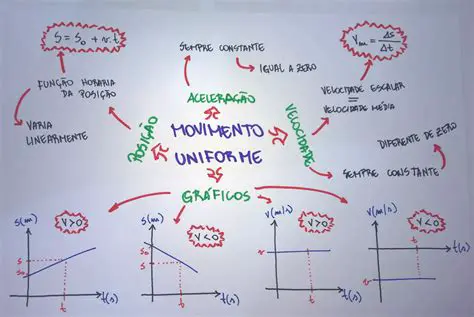 S = S₀ + v.t
FUNÇÃO HORÁRIA
DA POSIÇÃO
VARIA
LINEARMENTE
POSIÇÃO
SEMPRE CONSTANTE
IGUAL A ZERO
ACELERAÇÃO
MOVIMENTO
UNIFORME
VELOCIDADE
Vm = Δs
Δt
VELOCIDADE ESCALAR
=
VELOCIDADE MÉDIA
DIFERENTE DE ZERO
SEMPRE CONSTANTE
GRÁFICOS
S(m)
V>0
S
S₀
t
t(s)
S(m)
V<0
S₀
S
t
t(s)
V(m/s)
V>0
V
t
t(s)
V(m/s)
V<0
t
V
t(s)